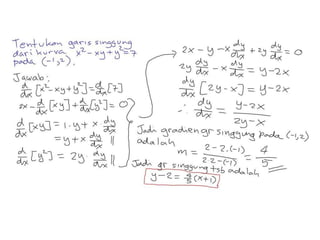 Tentukan garis singgung
dari kurva x² - xy + y² = 7
pada (-1,2).
Jawab:
d/dx [x² - xy + y²] = d/dx [7]
2x - d/dx [xy] + d/dx [y²] = 0
d/dx [xy] = 1.y + x dy/dx
= y + x dy/dx //
d/dx [y²] = 2y dy/dx //
2x - y - x dy/dx + 2y dy/dx = 0
2y dy/dx - x dy/dx = y - 2x
dy/dx [2y - x] = y - 2x
∴ dy/dx = y - 2x / 2y - x
Jadi gradien gr singgung pada (-1,2)
adalah
m = 2 - 2.(-1) / 2.2 - (-1) = 4/5
Jadi gr singgung tsb adalah
y - 2 = 4/5 (x + 1)